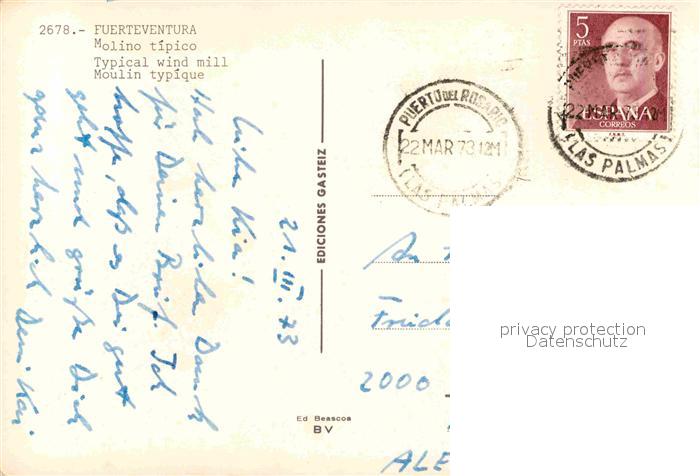 2678.- FUERTEVENTURA
Molino típico
Typical wind mill
Moulin typique
21. III. 73
Liebe Kia!
Hab herzlichen Dank
für Deinen Brief. Ich
hoffe, daß es Dir gut
geht und grüße Dich
ganz herzlich Dein Kai
EDICIONES GASTEIZ
Ed Beascoa
BV
5
PTAS
ESPAÑA
CORREOS
PUERTO DEL ROSARIO
22 MAR 73 12M
(LAS PALMAS)
22 MAR 73 12M
(LAS PALMAS)
An
2000
ALE
privacy protection
Datenschutz